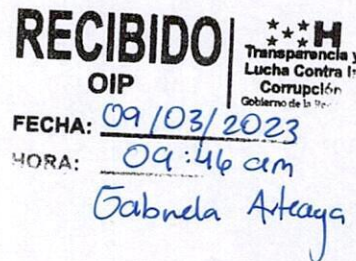 RECIBIDO
OIP
H
Transparencia y
Lucha Contra l
Corrupción
Gobierno de la
FECHA: 09/03/2023
HORA: 09:46 am
Gabriela Arteaga